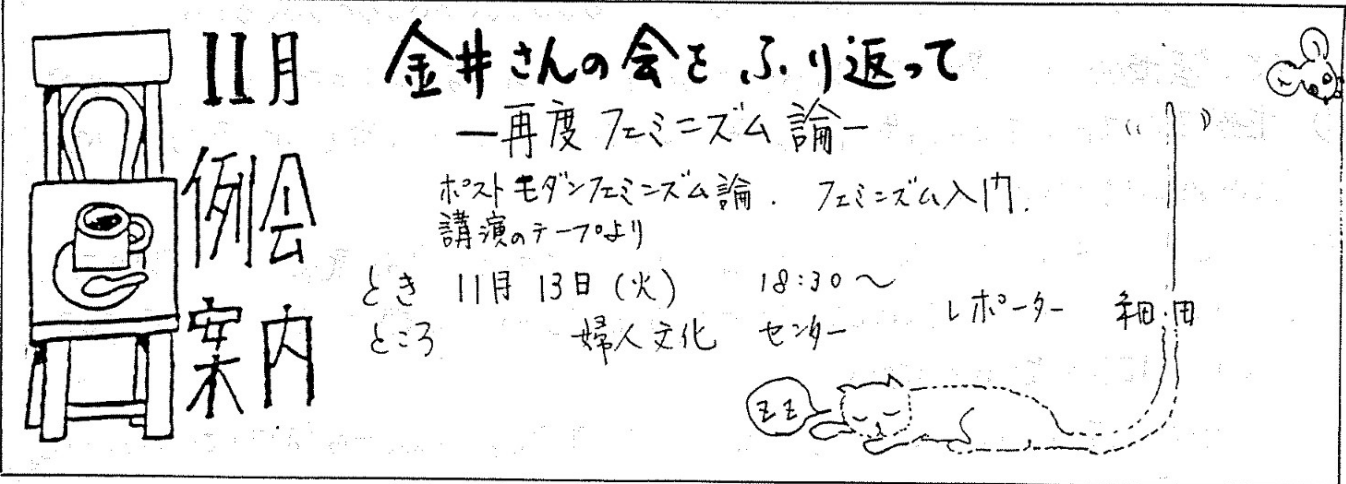 11月
例会
案内
金井さんの会をふり返って
―再度フェミニズム論―
ポストモダンフェミニズム論. フェミニズム入門.
講演のテープより
とき 11月13日(火) 18:30～
ところ 婦人文化センター
レポーター
ZZ